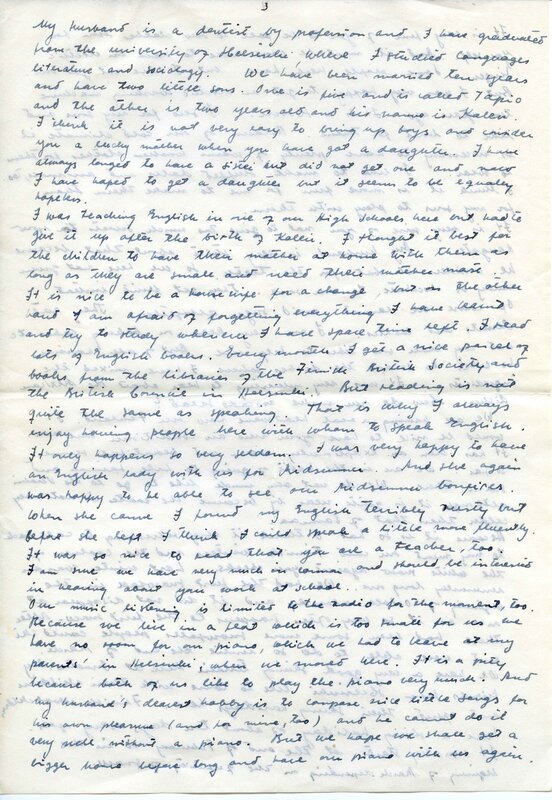 3
My husband is a dentist by profession and I have graduated
from the university of Helsinki where I studied languages
literature and sociology. We have been married ten years
and have two little sons. One is five and is called Tapio
and the other is two years old and his name is Kalevi.
I think it is not very easy to bring up boys and consider
you a lucky mother when you have got a daughter. I have
always longed to have a sister but did not get one and now
I have hoped to get a daughter but it seems to be equally
hopeless.
I was teaching English in one of our High Schools here but had to
give it up after the birth of Kalevi. I thought it best for
the children to have their mother at home with them as
long as they are small and need their mother most.
It is nice to be a housewife for a change, but on the other
hand I am afraid of forgetting everything I have learnt
and try to study whenever I have spare time left. I read
lots of English books. Every month I get a nice parcel of
books from the libraries of the Finnish British Society and
the British Council in Helsinki. But reading is not
quite the same as speaking. That is why I always
enjoy having people here with whom to speak English.
It only happens so very seldom. I was very happy to have
an English lady with us for Midsummer. And she again
was happy to be able to see our Midsummer bonfires.
When she came I found my English terribly rusty but
before she left I think I could speak a little more fluently.
It was so nice to read that you are a teacher, too.
I am sure we have very much in common and should be interested
in hearing about your work at school.
Our music listening is limited to the radio for the moment, too.
Because we live in a flat which is too small for us we
have no room for our piano, which we had to leave at my
parents' in Helsinki, when we moved here. It is a pity
because both of us like to play the piano very much. And
my husband's dearest hobby is to compose nice little songs for
his own pleasure (and for mine, too) and he cannot do it
very well without a piano. But we hope we shall get a
bigger home before long and have our piano with us again.